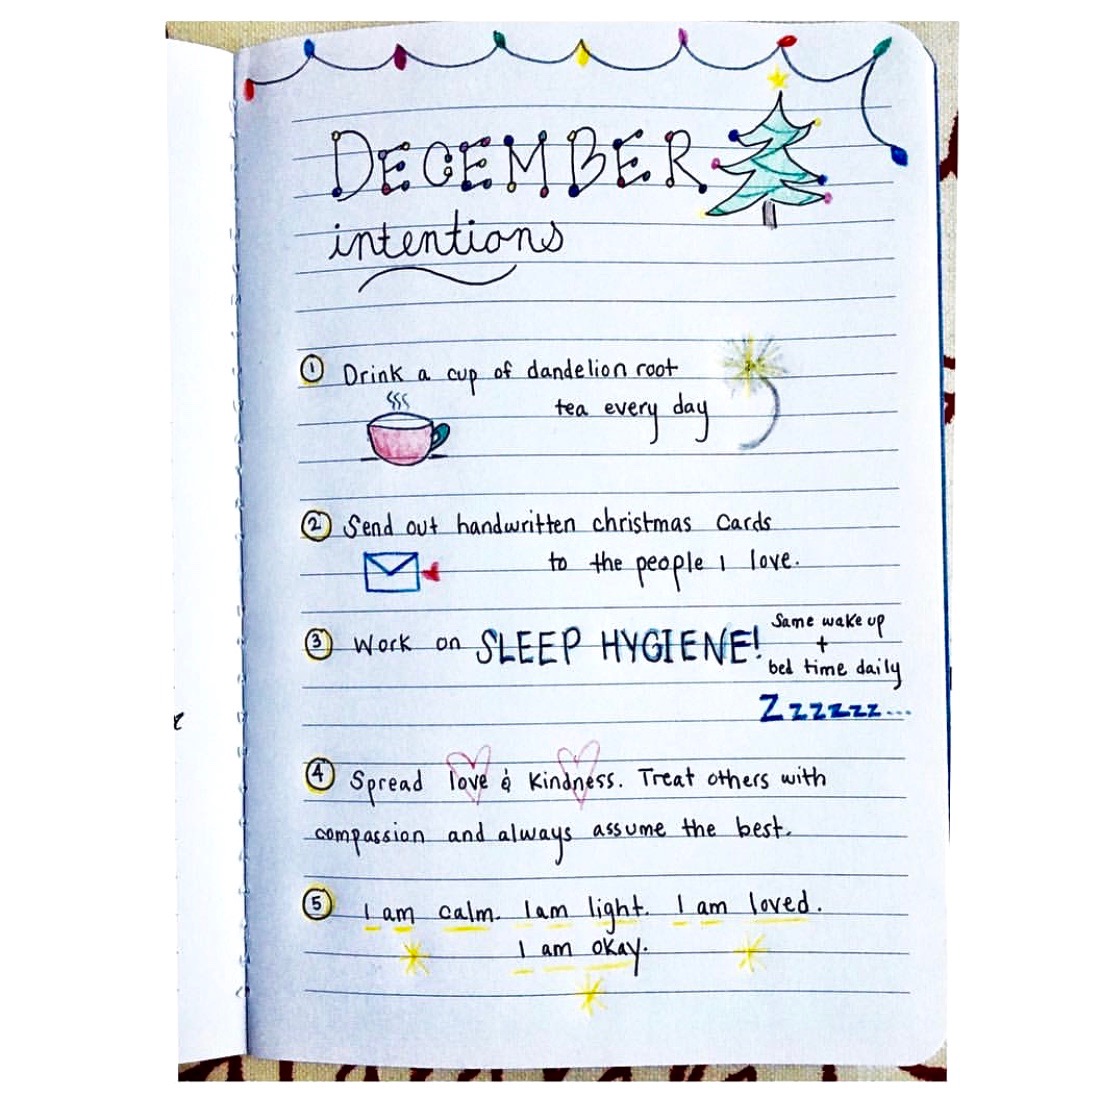 DECEMBER
intentions
1 Drink a cup of dandelion root
tea every day
2 Send out handwritten christmas cards
to the people I love.
3 Work on SLEEP HYGIENE! Same wake up
+
bed time daily
Zzzzzzz...
4 Spread love & kindness. Treat others with
compassion and always assume the best.
5 I am calm. I am light. I am loved.
I am okay.